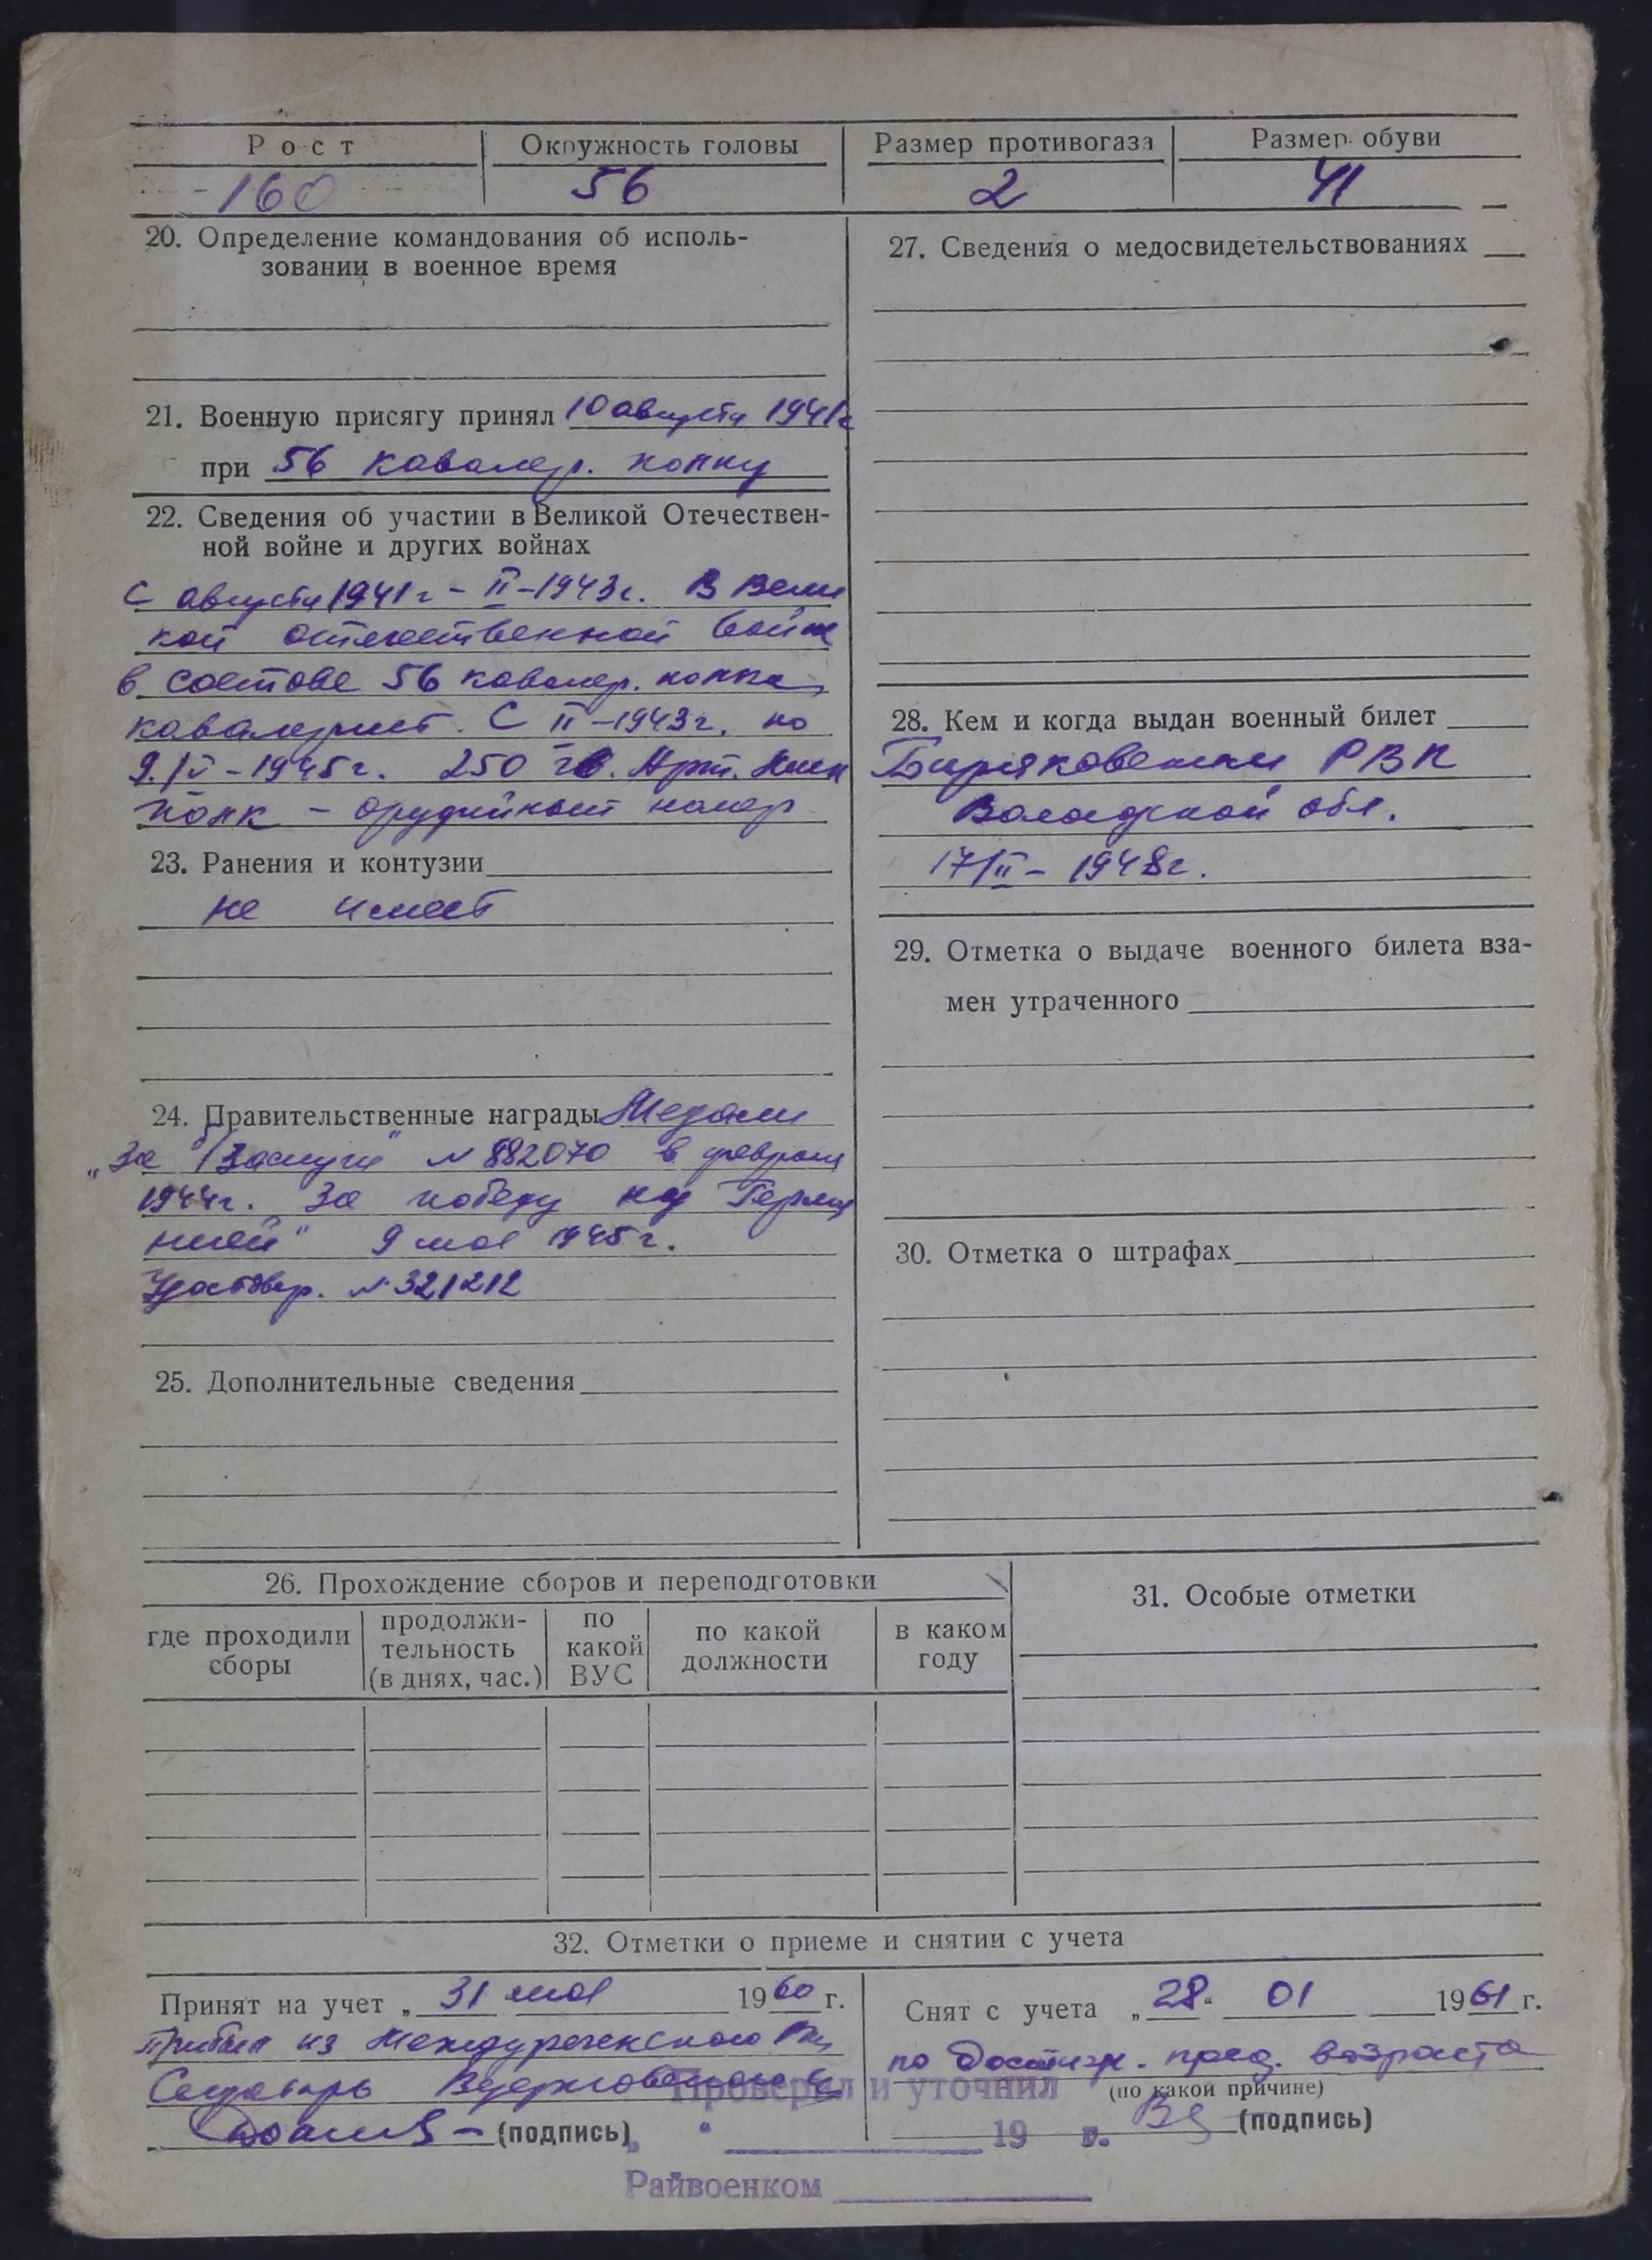 Рост Окружность головы Размер противогаза Размер обуви
160 56 2 41
20. Определение командования об исполь-
зовании в военное время
21. Военную присягу принял 10 августа 1941г
при 56 кавалер. полку
22. Сведения об участии в Великой Отечествен-
ной войне и других войнах
С августа 1941г - II-1943г. В Вели
кой отечественной войне
в составе 56 кавалер. полка,
кавалерист. С II-1943г. по
9/V-1945г. 250 гв. Арт.
полк - орудийный номер
23. Ранения и контузии
не имеет
24. Правительственные награды Медали
„За б/Заслуги" N 882070 в феврале
1944г. За победу над Герма
нией" 9 мая 1945г.
Удостовер. N 321212
25. Дополнительные сведения
27. Сведения о медосвидетельствованиях
28. Кем и когда выдан военный билет
Биряковским РВК
Вологдской обл.
17/II- 1948г.
29. Отметка о выдаче военного билета вза-
мен утраченного
30. Отметка о штрафах
26. Прохождение сборов и переподготовки
где проходили сборы
продолжи-
тельность
(в днях, час.)
по какой ВУС
по какой должности
в каком году
31. Особые отметки
32. Отметки о приеме и снятии с учета
Принят на учет „ 31 мая 1960 г.
Прибыл из Междуреченского
Секретарь
(подпись)
Снят с учета „28" 01 1961 г.
по достиж. пред. возраста
(по какой причине)
(подпись)
Проверил и уточнил
„ " 19 г.
Райвоенком